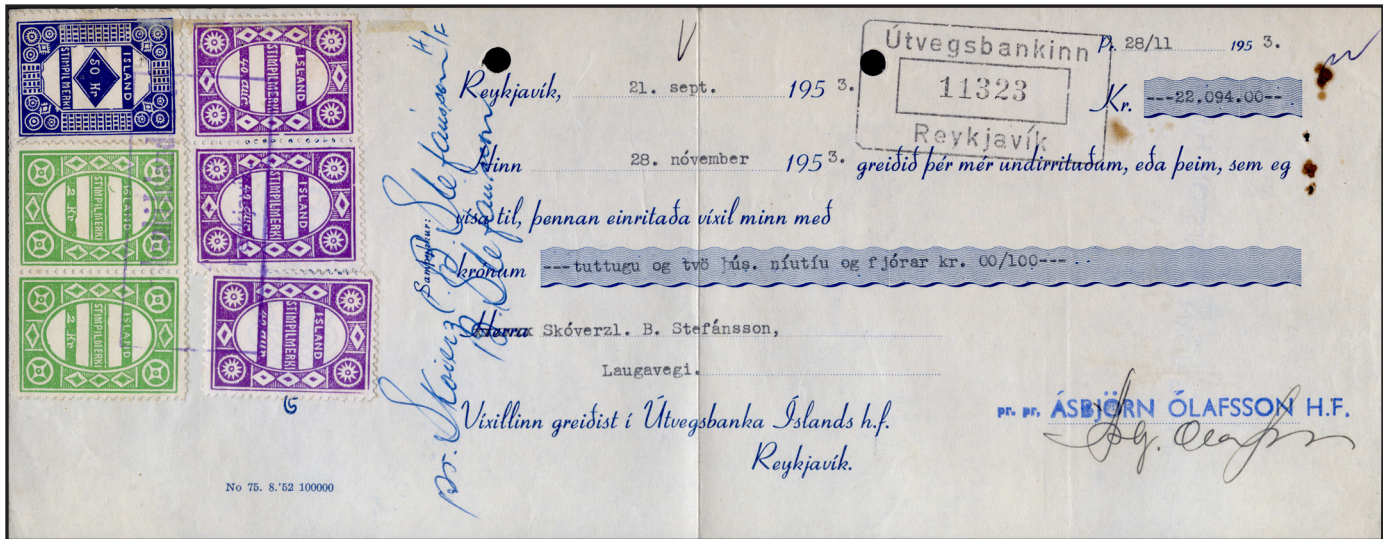 ISLAND
STIMPILMERKI
50 Kr
ISLAND
STIMPILMERKI
40 aur
ISLAND
STIMPILMERKI
2 Kr
ISLAND
STIMPILMERKI
40 aur
ISLAND
STIMPILMERKI
2 Kr
ISLAND
STIMPILMERKI
No 75. 8.'52 100000
Samþykkur:
pr. Skóverzl. B. Stefánsson H/F
B. Stefánsson
Útvegsbankinn
11323
Reykjavík
Pr. 28/11 1953.
Reykjavík, 21. sept. 1953.
Kr. ---22.094.00--
Hinn 28. nóvember 1953. greiðið þér mér undirrituðum, eða þeim, sem eg
vísa til, þennan einritaða víxil minn með
krónum ---tuttugu og tvö þús. níutíu og fjórar kr. 00/100---
Herra Skóverzl. B. Stefánsson,
Laugavegi.
Víxillinn greiðist í Útvegsbanka Íslands h.f.
Reykjavík.
pr. pr. ÁSBJÖRN ÓLAFSSON H.F.